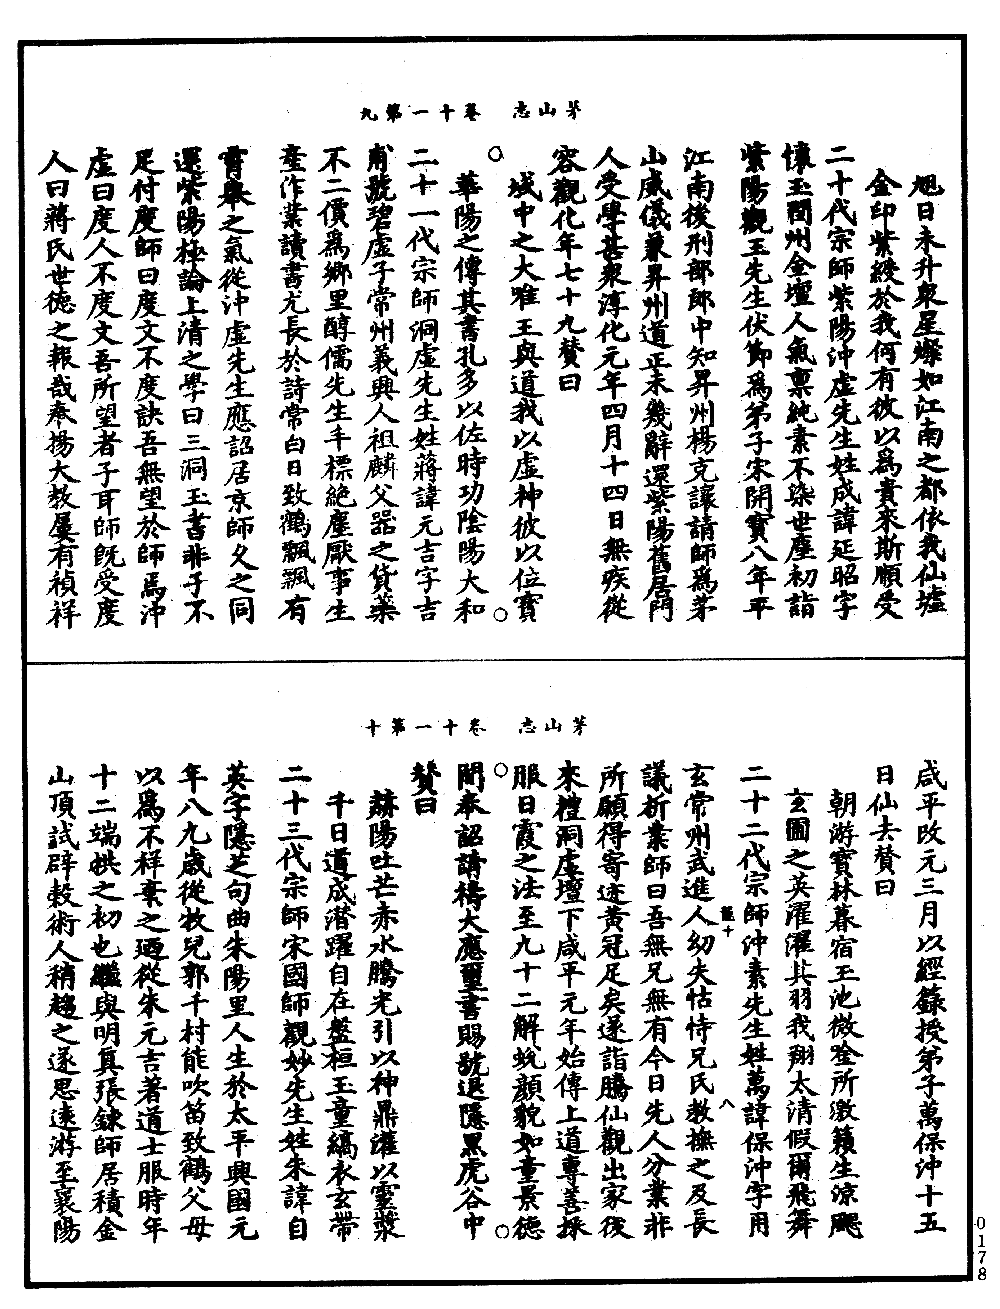 茅山志　卷十一第九
旭日未升衆星燦如江南之都依我仙墟
金印紫綬於我何有彼以爲貴來斯願受
二十代宗師紫陽沖虛先生姓成諱延昭字
懷玉閏州金壇人氣禀純素不染世塵初詣
紫陽觀王先生伏節爲弟子宋開寶八年平
江南後刑部郎中知昇州楊克讓請師爲茅
山威儀兼昇州道正未幾辭還紫陽舊居門
人受學甚衆淳化元年四月十四日無疾從
容觀化年七十九贊曰
域中之大雅王與道我以虛神彼以位寶
華陽之傳其書孔多以佐時功陰陽大和
二十一代宗師洞虛先生姓蔣諱元吉字吉
甫號碧虛子常州義興人祖麟父器之貨藥
不二價爲鄉里醇儒先生丰標絶塵厭事生
產作業讀書尤長於詩常白日致鶴飄飄有
霄舉之氣從沖虛先生應詔居京師久之同
還紫陽極論上清之學曰三洞玉書非子不
足付度師曰度文不度訣吾無望於師焉沖
虛曰度人不度文吾所望者子耳師旣受度
人曰蔣氏世德之報哉奉揚大教屢有禎祥
茅山志　卷十一第十
咸平改元三月以經籙授弟子萬保沖十五
日仙去贊曰
朝游寶林暮宿玉池微登所激籟生涼颸
玄圃之英濯濯其羽我翔太清假爾飛舞
二十二代宗師沖素先生姓萬諱保沖字用
玄常州武進人幼失怙恃兄氏教撫之及長
議析業師曰吾無兄無有今日先人分業非
所願得寄迹黃冠足矣遂詣騰仙觀出家後
來禮洞虛壇下咸平元年始傳上道專善採
服日霞之法至九十二解蛻顏貌如童景德
間奉詔請禱大應璽書賜號退隱黑虎谷中
贊曰
赫陽吐芒赤水騰光引以神鼎濯以靈漿
千日道成潛躍自在盤桓玉童縞衣玄帶
二十三代宗師宋國師觀妙先生姓朱諱自
英字隱芝句曲朱陽里人生於太平興國元
年八九歲從牧兒郭千村能吹笛致鶴父母
以爲不祥棄之廼從朱元吉著道士服時年
十二端拱之初也繼與明真張鍊師居積金
山頂試辟穀術人稍趨之遂思遠游至襄陽
八
0178